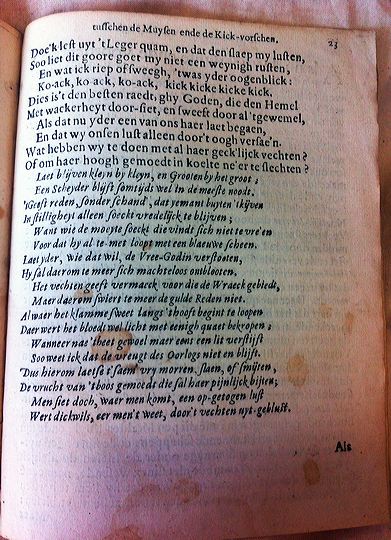 tusschen de Muysen ende de Kick-vorschen.
23
Doe'k lest uyt 't Leger quam, en dat den slaep my lusten,
Soo liet dit goore goet my niet een weynigh rusten,
En wat ick riep of sweegh, 'twas yder oogenblick:
Ko-ack, ko-ack, ko-ack, kick kicke kicke kick.
Dies is't den besten raedt, ghy Goden, die den Hemel
Met wackerheyt door-siet, en sweeft door al 'tgewemel,
Als dat nu yder een van ons haer laet begaen,
En dat wy onsen lust alleen door't oogh versae'n.
Wat hebben wy te doen met al haer geck'lijck vechten?
Of om haer hoogh gemoedt in koelte ne'er te slechten?
Laet blijven kleyn by kleyn, en Grooten by het groot;
Een Scheyder blijft somtijds wel in de meeste noodt.
'tGeest reden, sonder schand', dat yemant buyten 't kijven
In stilligheyt alleen soeckt vredelijck te blijven;
Want wie de moeyte soeckt die vindt sich niet te vre'en
Voor dat hy al te-met loopt met een blaeuwe scheen.
Laet yder, wie dat wil, de Vree-Godin verstooten,
Hy sal daerom te meer sich machteloos ontblooten.
Het vechten geeft vermaeck voor die de Wraeck gebiedt,
Maer daerom swiert te meer de gulde Reden niet.
Al waer het klamme sweet langs 't hooft begint te loopen
Daer wert het bloedt wel licht met eenigh quaet bekropen;
Wanneer nae 'theet gewoel maer eens een lit verstijft
Soo weet ick dat de vreugt des Oorlogs niet en blijft.
Dus hierom laetse t'saem vry morren, slaen, of smijten,
De vrucht van 't boos gemoedt die sal haer pijnlijck bijten;
Men siet doch, waer men komt, een op-getogen lust
Wert dickwils, eer men't weet, door't vechten uyt-geblust.
Als